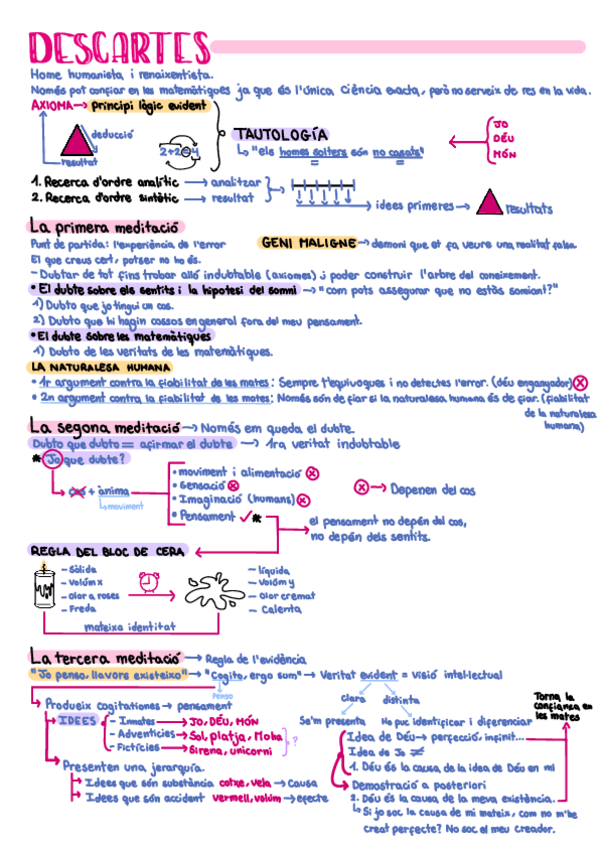 DESCARTES
Home humanista i renaixentista.
Només pot confiar en les matemàtiques ja que és l'única ciència exacta, però no serveix de res en la vida.
AXIOMA → principi lògic evident
deducció
resultat
2+2=4
TAUTOLOGÍA
↳ "els homes solters són no casats"
JO
DÉU
MÓN
1. Recerca d'ordre analític → analitzar
2. Recerca d'ordre sintètic → resultat
idees primeres → resultats
La primera meditació
Punt de partida: l'experiència de l'error
GENI MALIGNE → demoni que et fa veure una realitat falsa.
El que creus cert, potser no ho és.
- Dubtar de tot fins trobar allò indubtable (axiomes) i poder construir l'arbre del coneixement.
• El dubte sobre els sentits i la hipotesi del somni → "com pots assegurar que no estàs somiant?"
1) Dubto que jo tingui un cos.
2) Dubto que hi hagin cossos en general fora del meu pensament.
• El dubte sobre les matemàtiques
1) Dubto de les veritats de les matemàtiques.
LA NATURALESA HUMANA
• 1r argument contra la fiabilitat de les mates: Sempre t'equivoques i no detectes l'error. (déu enganyador)
• 2n argument contra la fiabilitat de les mates: Només són de fiar si la naturalesa humana és de fiar. (fiabilitat
de la naturalesa
humana)
La segona meditació → Només em queda el dubte.
Dubto que dubto = afirmar el dubte → 1ra veritat indubtable
* Jo que dubte?
cos + ànima
↳ moviment
• moviment i alimentació
• Sensació
• Imaginació (humans)
• Pensament ✓ *
→ Depenen del cos
el pensament no depèn del cos,
no depèn dels sentits.
REGLA DEL BLOC DE CERA
- Sòlida
- Volúm x
- Olor a roses
- Freda
- líquida
- Volúm y
- Olor cremat
- Calenta
mateixa identitat
La tercera meditació → Regla de l'evidència
"Jo penso, llavors existeixo" → "Cogito, ergo sum" → Veritat evident = visió intel·lectual
Penso
clara
distinta
Se'm presenta
Ho puc identificar i diferenciar
Torna la
confiança en
les mates
Produeix cogitationes → pensament
IDEES
- Innates → JO, DÉU, MÓN
- Adventícies → Sol, platja, Moha
- Fictícies → Sirena, unicorni
?
Presenten una jerarquía.
Idees que són substància cotxe, vela → Causa
Idees que són accident vermell, volúm → efecte
Idea de Déu → perfecció, infinit...
Idea de Jo ≠
1. Déu és la causa de la idea de Déu en mi
Demostració a posteriori
2. Déu és la causa de la meva existència.
↳ Si jo soc la causa de mi mateix, com no m'he
creat perfecte? No soc el meu creador.